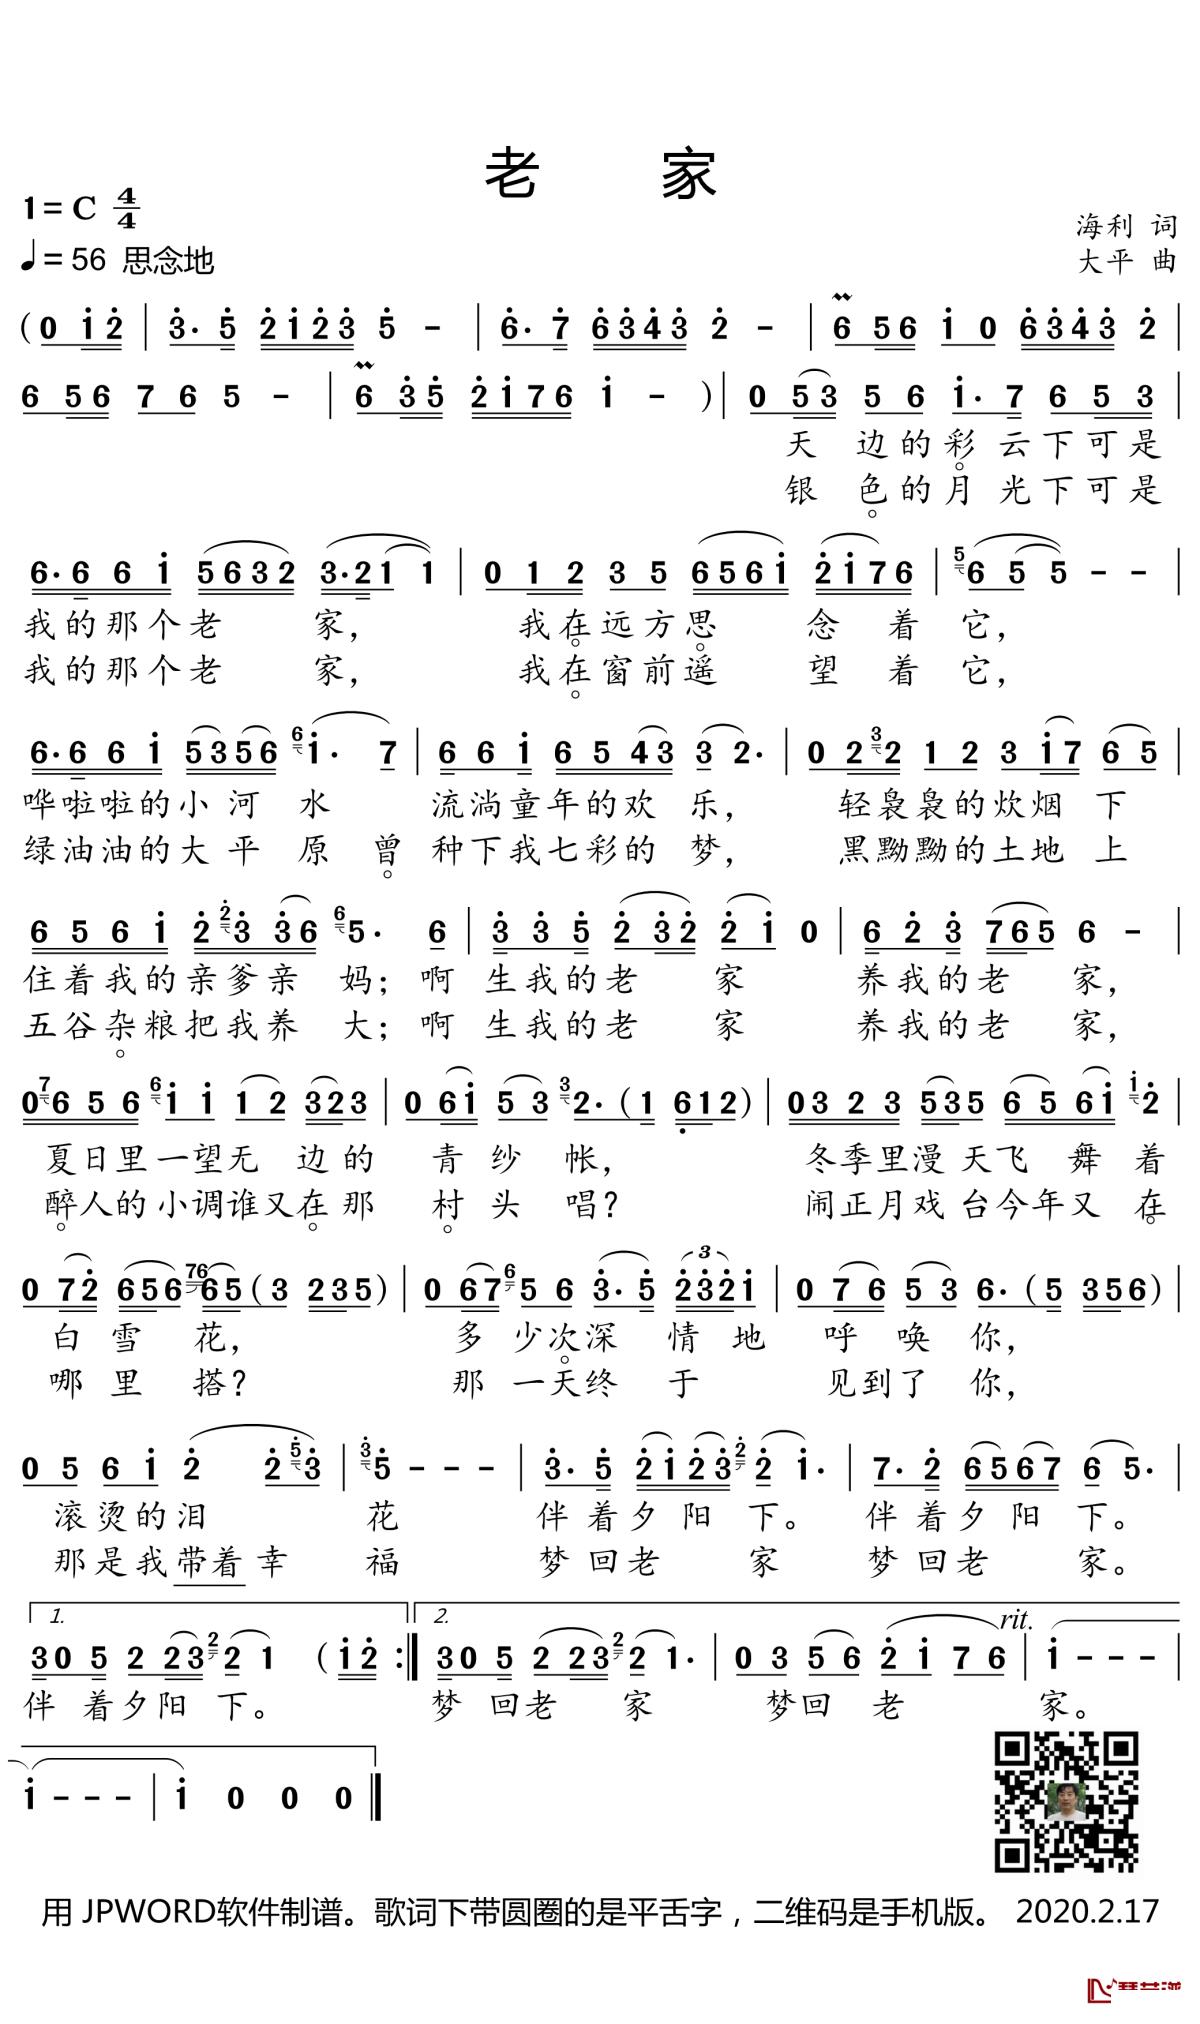 老 家
1=C 4/4
海利 词
♩=56 思念地
大平 曲
(0 i 2 | 3· 5 2 i 2 3 5 - | 6· 7 6 3 4 3 2 - | 6 5 6 i 0 6 3 4 3 2 |
6 5 6 7 6 5 - | 6 3 5 2 i 7 6 i - ) | 0 5 3 5 6 i· 7 6 5 3 |
天 边的彩 云下可是
银 色的月 光下可是
6· 6 6 i 5 6 3 2 3· 2 1 1 | 0 1 2 3 5 6 5 6 i 2 i 7 6 | 5 6 5 5 - - |
我的那个老 家， 我在远方思 念 着 它，
我的那个老 家， 我在窗前遥 望 着 它，
6· 6 6 i 5 3 5 6 6 i· 7 | 6 6 i 6 5 4 3 3 2· | 0 2 3 2 1 2 3 i 7 6 5 |
哗啦啦的小 河 水 流淌童年的欢 乐， 轻袅袅的炊烟 下
绿油油的大 平 原 曾 种下我七彩的 梦， 黑黝黝的土地 上
6 5 6 i 2 2 3 3 6 6 5· 6 | 3 3 5 2 3 2 2 i 0 | 6 2 3 7 6 5 6 - |
住着我的亲爹亲 妈；啊 生我的老 家 养我的老 家，
五谷杂粮把我养 大；啊 生我的老 家 养我的老 家，
0 7 6 5 6 6 i i 1 2 3 2 3 | 0 6 i 5 3 3 2·(1 6 1 2) | 0 3 2 3 5 3 5 6 5 6 i i 2 |
夏日里一望无 边的 青 纱 帐， 冬季里漫天飞 舞 着
醉人的小调谁又在那 村 头 唱？ 闹正月戏台今年又 在
0 7 2 6 5 6 7 6 6 5 (3 2 3 5) | 0 6 7 6 5 6 3· 5 3 2 3 2 i | 0 7 6 5 3 6·(5 3 5 6) |
白 雪 花， 多 少次深 情 地 呼 唤 你，
哪 里 搭？ 那 一天终 于 见到了 你，
0 5 6 i 2 2 5 3 | 3 5 - - - | 3· 5 2 i 2 3 2 2 i· | 7· 2 6 5 6 7 6 5· |
滚烫的泪 花 伴着夕 阳 下。 伴着夕 阳 下。
那是我带着幸 福 梦回老 家 梦回老 家。
1. 2. rit.
3 0 5 2 2 3 2 2 1 (i 2 :| 3 0 5 2 2 3 2 2 1· | 0 3 5 6 2 i 7 6 | i - - - |
伴 着夕阳 下。 梦 回老 家 梦回 老 家。
i - - - | i 0 0 0 ‖
用 JPWORD软件制谱。歌词下带圆圈的是平舌字，二维码是手机版。 2020.2.17
琴艺谱